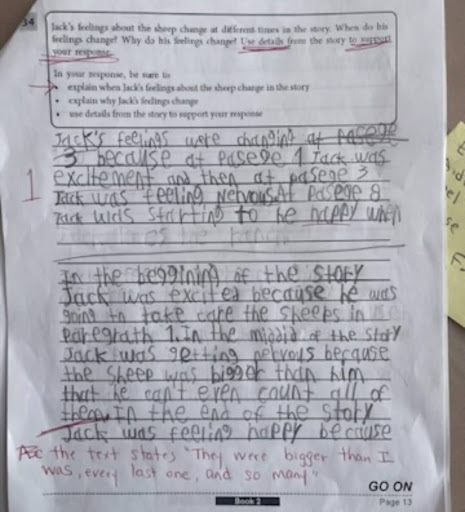 34
Jack's feelings about the sheep change at different times in the story. When do his
feelings change? Why do his feelings change? Use details from the story to support
your response.
In your response, be sure to
• explain when Jack's feelings about the sheep change in the story
• explain why Jack's feelings change
• use details from the story to support your response
Jack's feelings were changing at pasege
3 because at pasege 1 Jack was
1
excitement and then at pasege 3
Jack was feeling nervous. At pasege 8
Jack was starting to be happy when
In the beggining of the story
Jack was excited because he was
going to take care the sheeps in
paregrath 1. In the middid of the story
Jack was getting nervous because
the sheep was bigger than him
that he can't even count all of
them. In the end of the story
Jack was feeling happy because
the text states "They were bigger than I
was, every last one, and so many"
GO ON
Book 2
Page 13